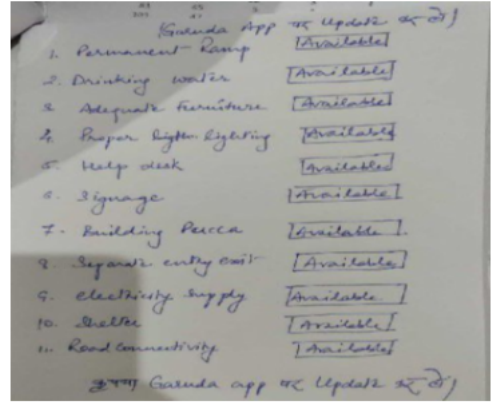 Garuda App पर Update कर दें।
1. Permanent Ramp Available
2. Drinking water Available
3. Adequate Furniture Available
4. Proper lighting Available
5. Help desk Available
6. Signage Available
7. Building Pucca Available
8. Separate entry exit Available
9. electricity supply Available
10. Shelter Available
11. Road connectivity Available
कृपया Garuda app पर Update कर दें।